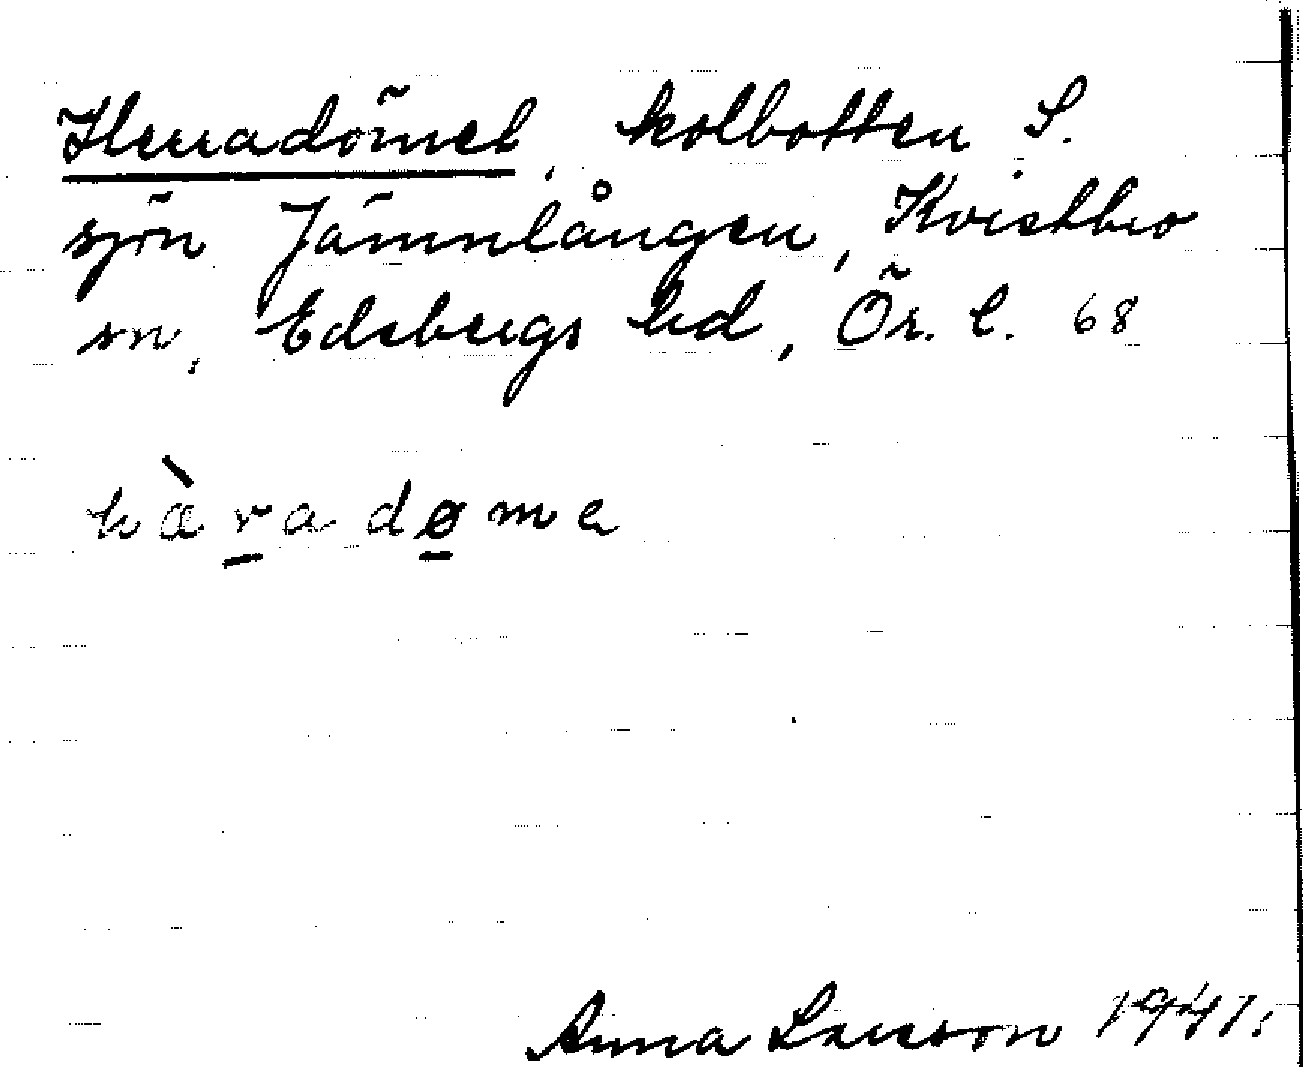 Herradömet, kolbotten S.
sjön Jämnlången, Kvistbro
sn, Edsbergs hd, Ör. l. 68
hæ̀radøme
Anna Larsson 1941.